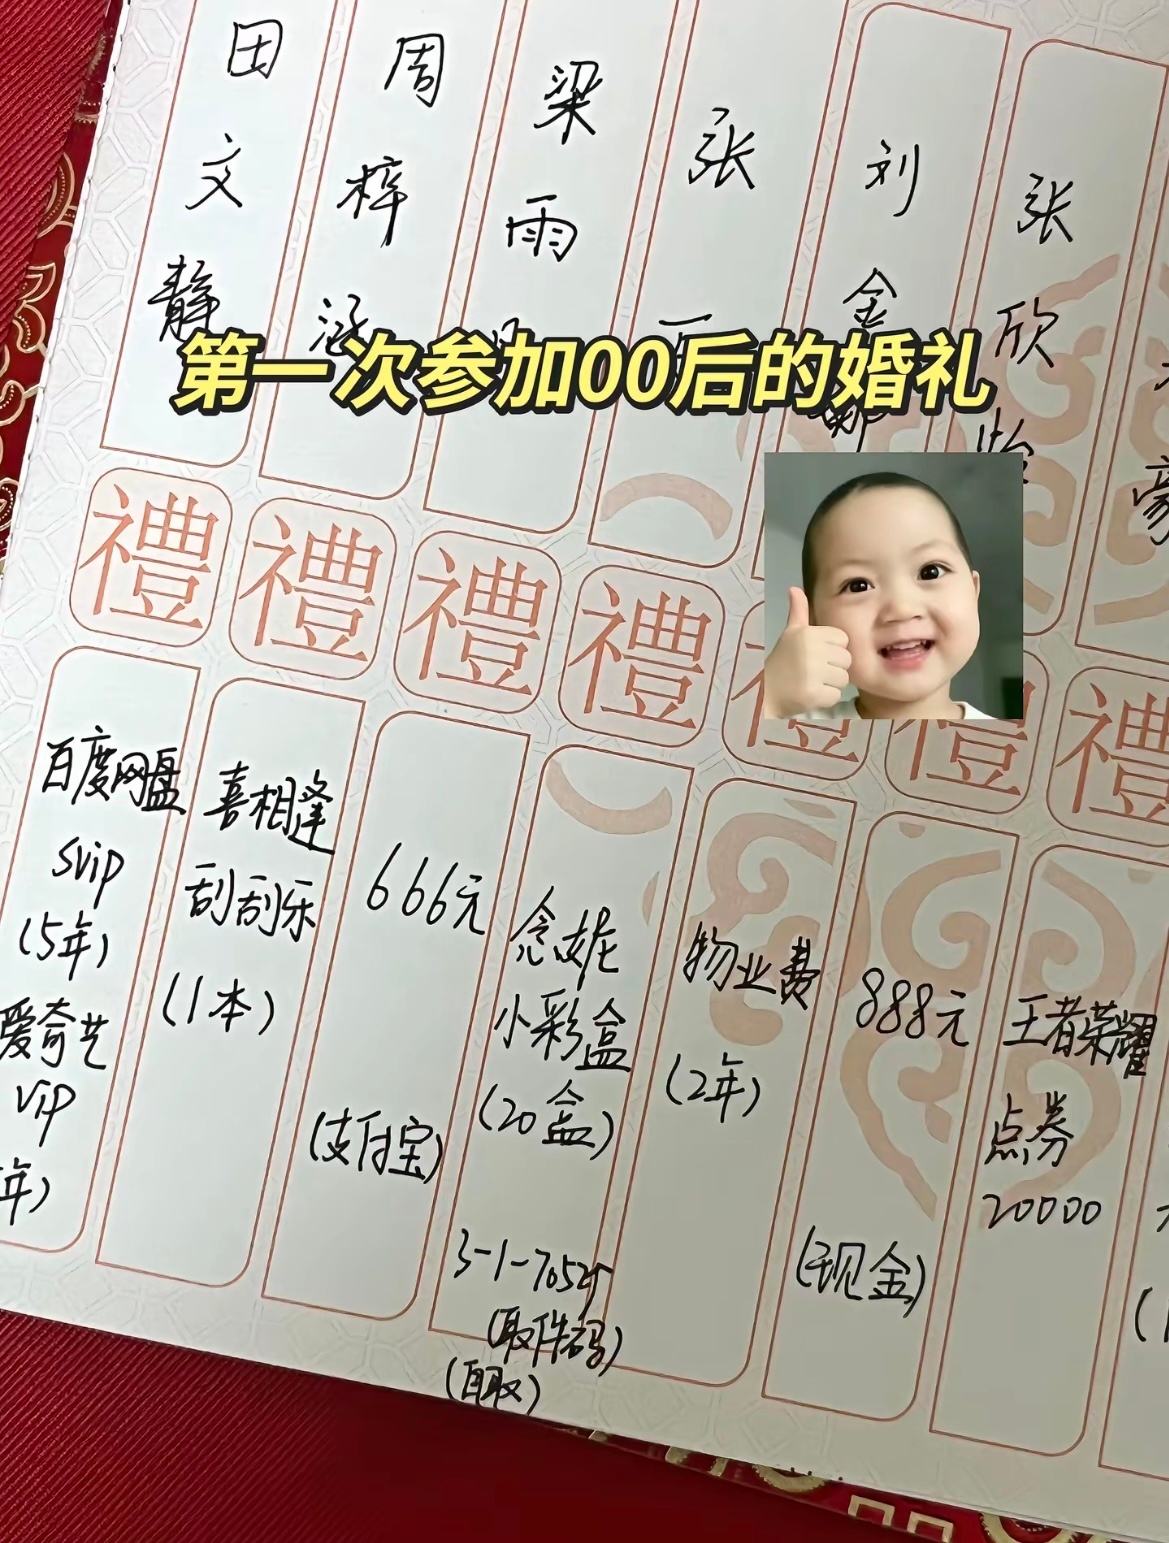 田文静
周梓涵
梁雨
张一
刘金
张欣怡
豪
第一次参加00后的婚礼
禮
禮
禮
禮
禮
禮
禮
百度网盘
svip
(5年)
爱奇艺
vip
年)
喜相逢
刮刮乐
(1本)
666元
(支付宝)
念妃
小彩盒
(20盒)
3-1-7052
(取件码)
(自取)
物业费
(2年)
888元
(现金)
王者荣耀
点券
20000